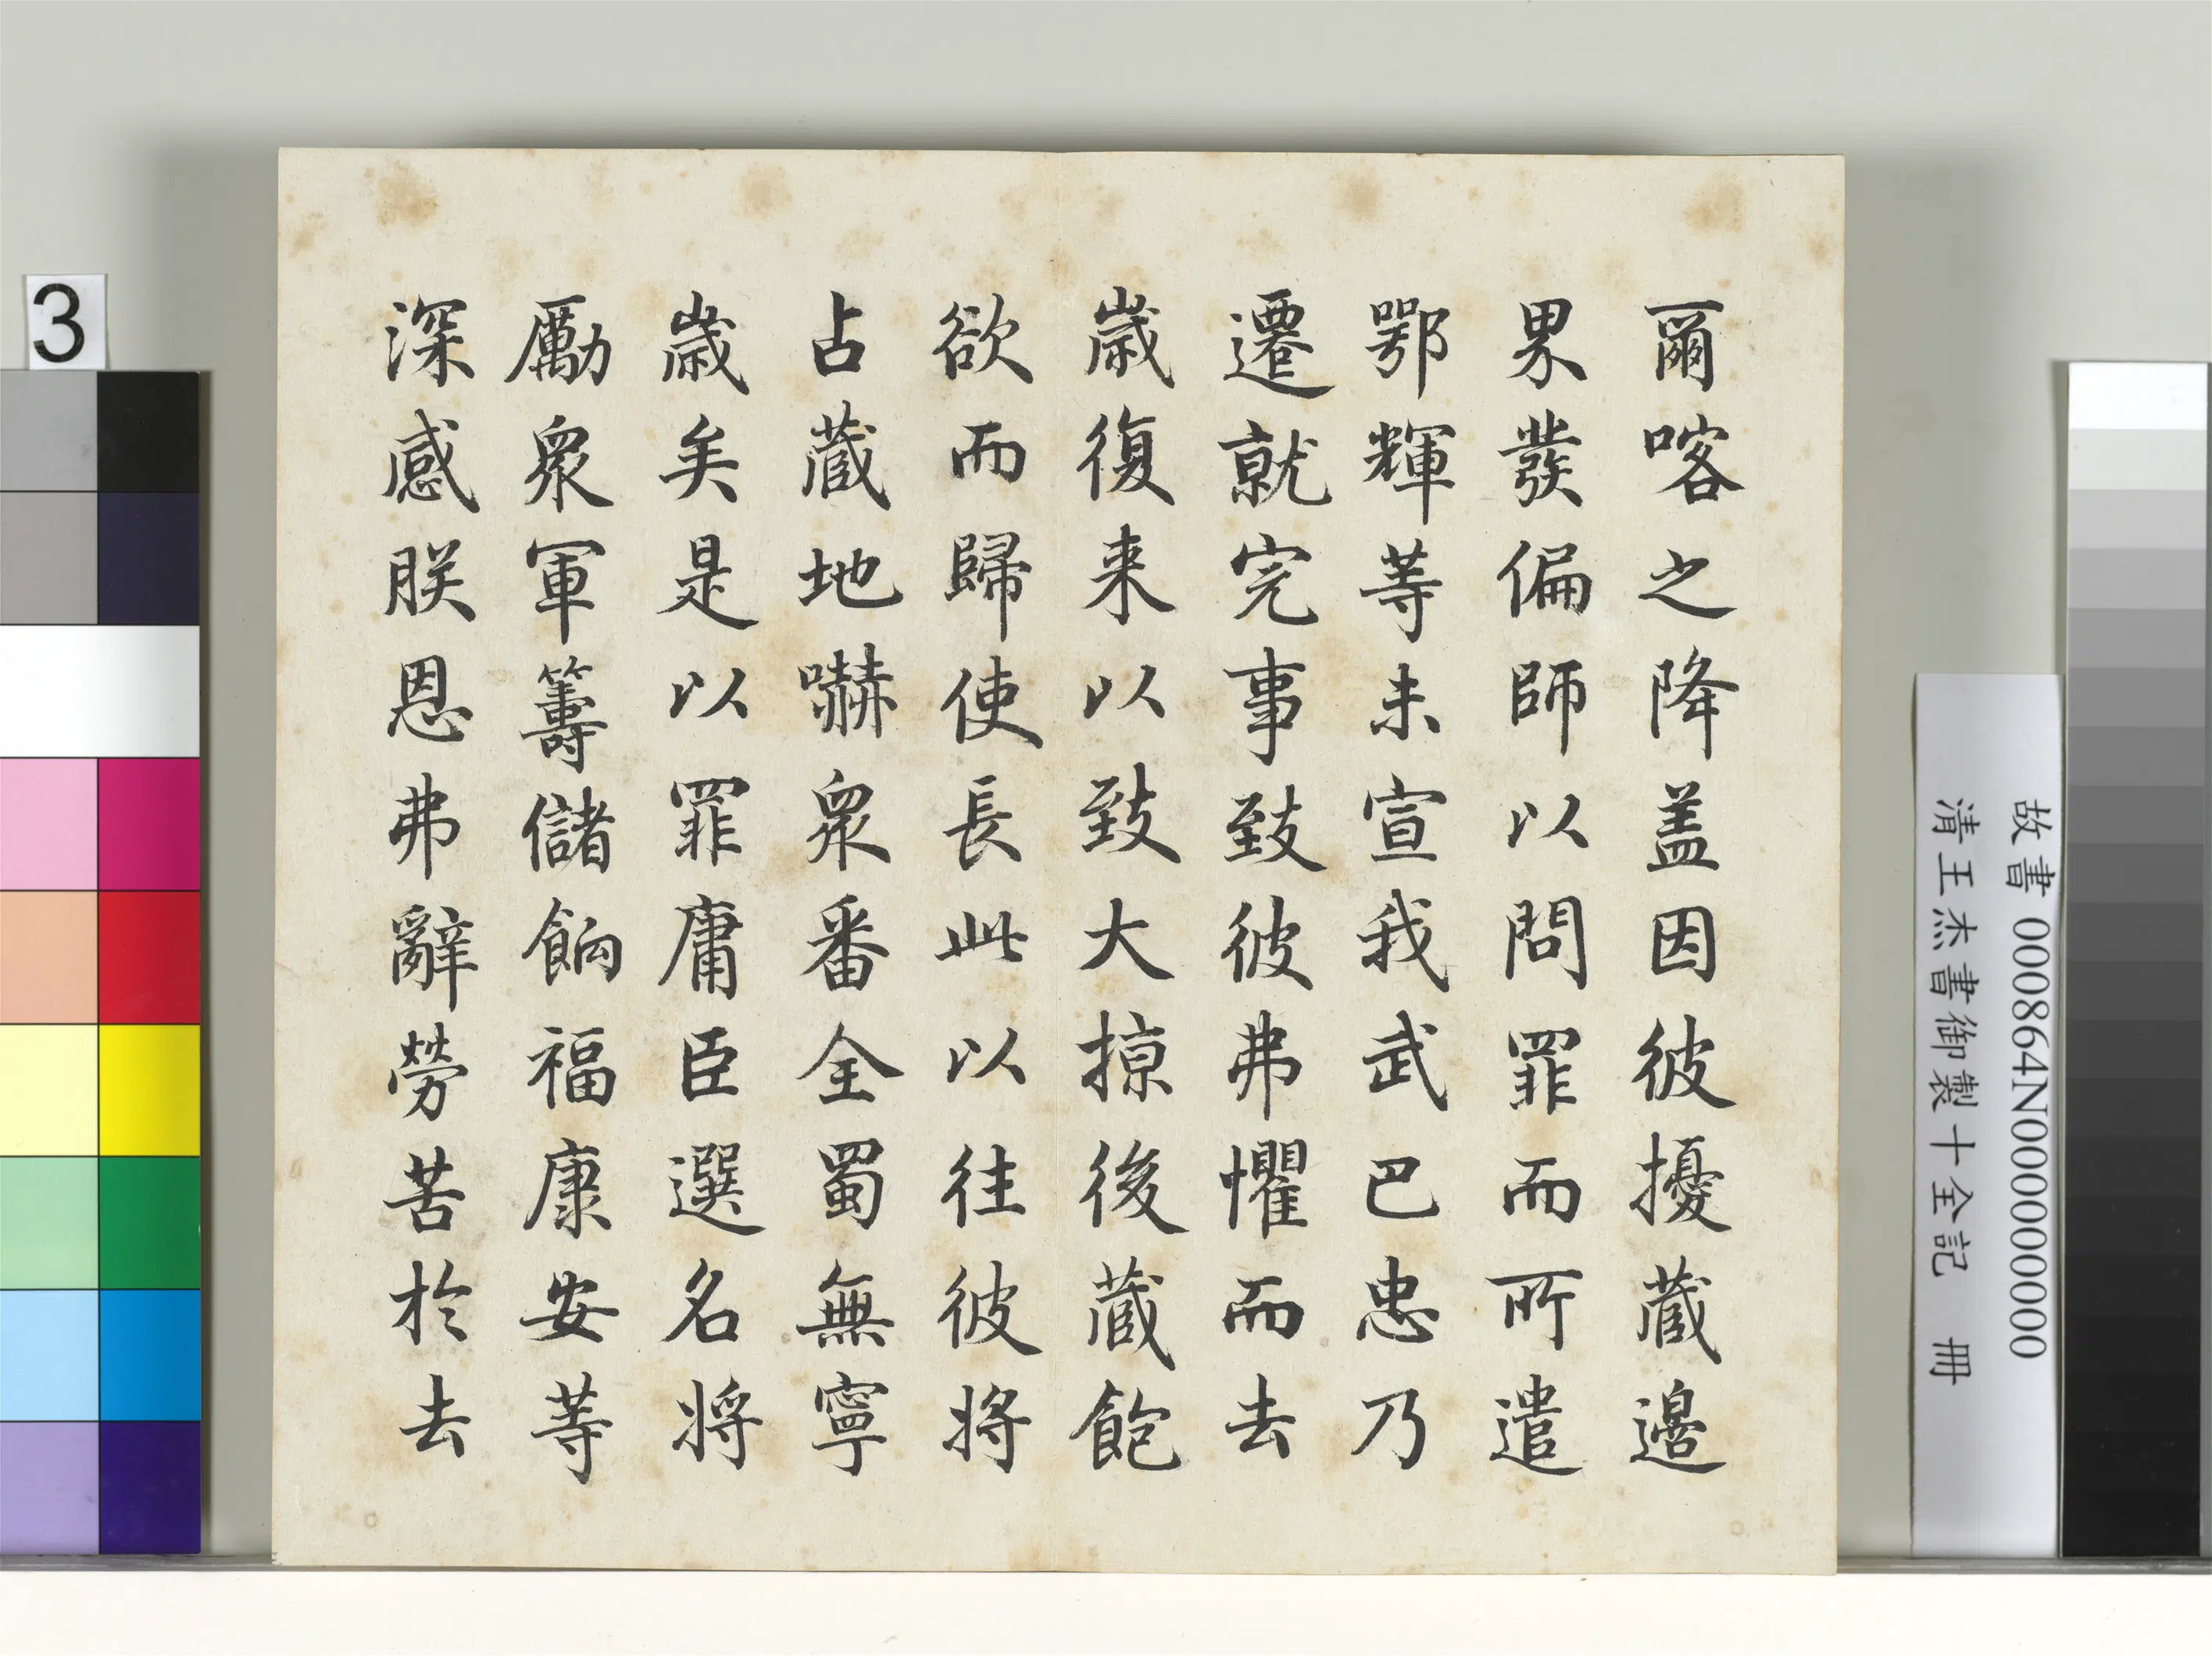 爾喀之降盖因彼擾蔵邊
界發偏師以問罪而所遣
鄂輝等未宣我武巴忠乃
遷就完事致彼弗懼而去
歳復来以致大掠後蔵飽
欲而歸使長此以往彼將
占蔵地嚇衆番全蜀無寧
歳矣是以罪庸臣選名將
勵衆軍籌儲餉福康安等
深感朕恩弗辭勞苦於去
3
故書 000864N000000000
清王杰書御製十全記 冊